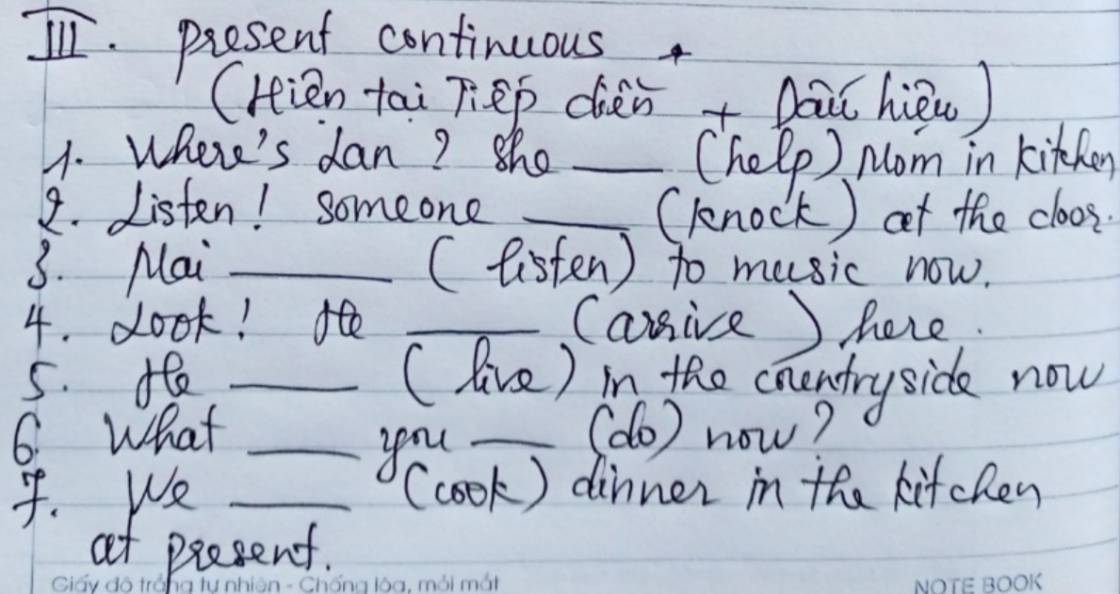 III. present continuous +
(Hiện tại Tiếp diễn + Dấu hiệu)
1. Where's Lan? She ____ (help) Mom in kitchen
2. Listen! someone ____ (knock) at the door.
3. Mai ____ (listen) to music now.
4. Look! He ____ (arrive) here.
5. He ____ (live) in the countryside now
6. What ____ you ____ (do) now?
7. We ____ (cook) dinner in the kitchen
at present.
Giấy độ trắng tự nhiên - Chống lóa, mỏi mắt NOTE BOOK